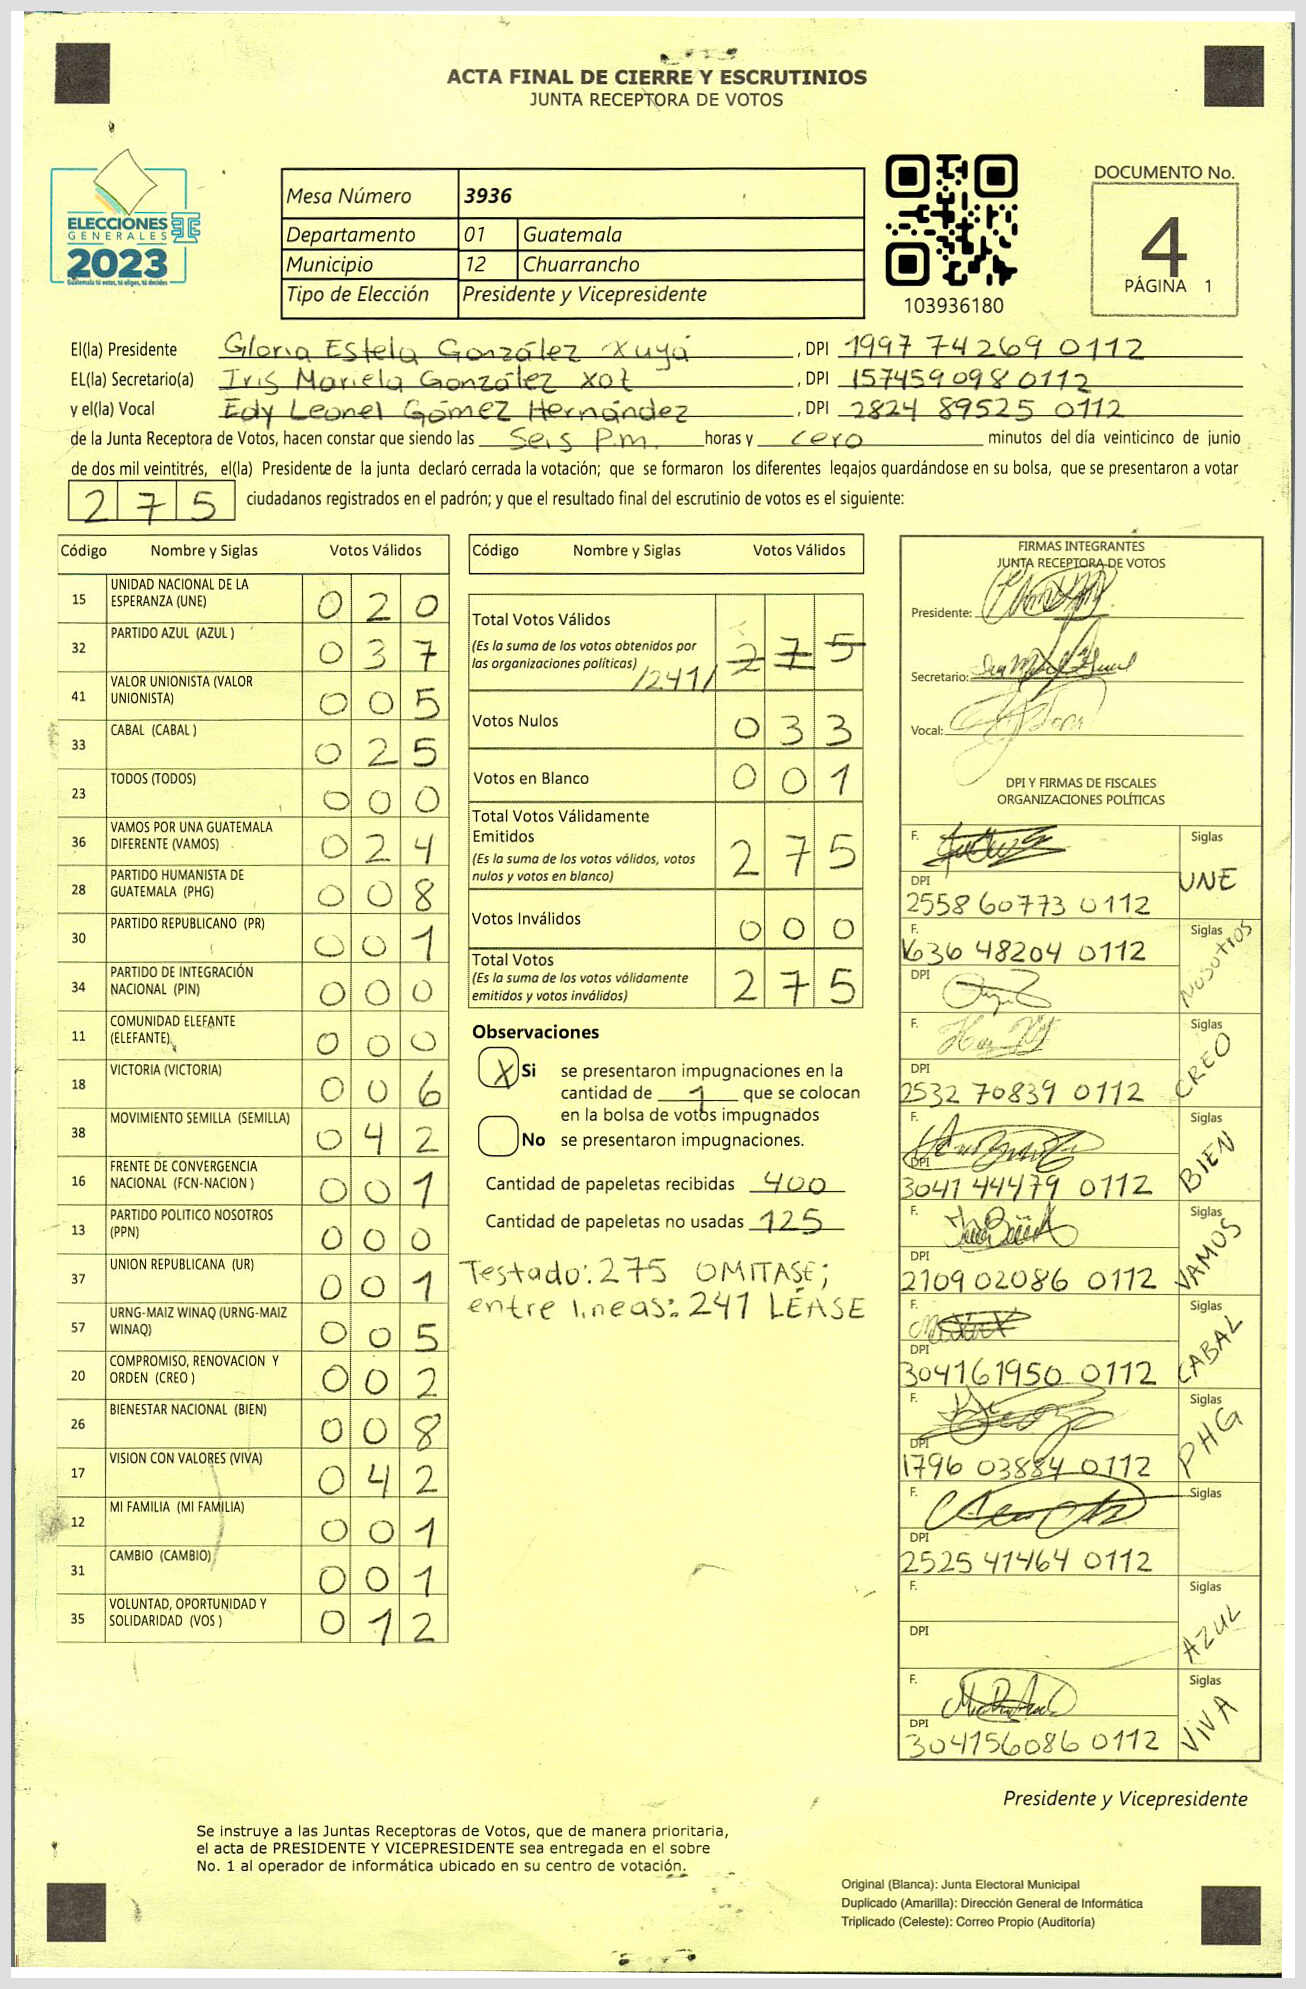 ACTA FINAL DE CIERRE Y ESCRUTINIOS
JUNTA RECEPTORA DE VOTOS
ELECCIONES
GENERALES
2023
Guatemala tú votas, tú eliges, tú decides
Mesa Número 3936
Departamento 01 Guatemala
Municipio 12 Chuarrancho
Tipo de Elección Presidente y Vicepresidente
103936180
DOCUMENTO No.
4
PÁGINA 1
El(la) Presidente Gloria Estela González Xuyá, DPI 1997 74269 0112
EL(la) Secretario(a) Iris Mariela González Xot, DPI 157459098 0112
y el(la) Vocal Edy Leonel Gómez Hernández, DPI 2824 89525 0112
de la Junta Receptora de Votos, hacen constar que siendo las Seis P.m. horas y cero minutos del día veinticinco de junio
de dos mil veintitrés, el(la) Presidente de la junta declaró cerrada la votación; que se formaron los diferentes legajos guardándose en su bolsa, que se presentaron a votar
275 ciudadanos registrados en el padrón; y que el resultado final del escrutinio de votos es el siguiente:
Código Nombre y Siglas Votos Válidos
15 UNIDAD NACIONAL DE LA
ESPERANZA (UNE) 020
32 PARTIDO AZUL (AZUL ) 037
41 VALOR UNIONISTA (VALOR
UNIONISTA) 005
33 CABAL (CABAL ) 025
23 TODOS (TODOS) 000
36 VAMOS POR UNA GUATEMALA
DIFERENTE (VAMOS) 024
28 PARTIDO HUMANISTA DE
GUATEMALA (PHG) 008
30 PARTIDO REPUBLICANO (PR) 001
34 PARTIDO DE INTEGRACIÓN
NACIONAL (PIN) 000
11 COMUNIDAD ELEFANTE
(ELEFANTE) 000
18 VICTORIA (VICTORIA) 006
38 MOVIMIENTO SEMILLA (SEMILLA) 042
16 FRENTE DE CONVERGENCIA
NACIONAL (FCN-NACION ) 001
13 PARTIDO POLITICO NOSOTROS
(PPN) 000
37 UNION REPUBLICANA (UR) 001
57 URNG-MAIZ WINAQ (URNG-MAIZ
WINAQ) 005
20 COMPROMISO, RENOVACION Y
ORDEN (CREO ) 002
26 BIENESTAR NACIONAL (BIEN) 008
17 VISION CON VALORES (VIVA) 042
12 MI FAMILIA (MI FAMILIA) 001
31 CAMBIO (CAMBIO) 001
35 VOLUNTAD, OPORTUNIDAD Y
SOLIDARIDAD (VOS ) 012
Código Nombre y Siglas Votos Válidos
Total Votos Válidos
(Es la suma de los votos obtenidos por
las organizaciones políticas) /241/ 275
Votos Nulos 033
Votos en Blanco 001
Total Votos Válidamente
Emitidos
(Es la suma de los votos válidos, votos
nulos y votos en blanco) 275
Votos Inválidos 000
Total Votos
(Es la suma de los votos válidamente
emitidos y votos inválidos) 275
Observaciones
X Si se presentaron impugnaciones en la
cantidad de 1 que se colocan
en la bolsa de votos impugnados
No se presentaron impugnaciones.
Cantidad de papeletas recibidas 400
Cantidad de papeletas no usadas 125
Testado: 275 OMITASE;
entre lineas: 241 LÉASE
FIRMAS INTEGRANTES
JUNTA RECEPTORA DE VOTOS
Presidente:
Secretario:
Vocal:
DPI Y FIRMAS DE FISCALES
ORGANIZACIONES POLÍTICAS
F. Siglas
DPI UNE
2558 60773 0112
F. Siglas
1636 48204 0112
DPI NOSOTROS
F. Siglas
DPI CREO
2532 70839 0112
F. Siglas
DPI BIEN
3041 44479 0112
F. Siglas
DPI VAMOS
2109 02086 0112
F. Siglas
DPI CABAL
304161950 0112
F. Siglas
DPI PHG
1796 03884 0112
F. Siglas
DPI
2525 41464 0112
F. Siglas
DPI AZUL
F. Siglas
DPI VIVA
304156086 0112
Presidente y Vicepresidente
Se instruye a las Juntas Receptoras de Votos, que de manera prioritaria,
el acta de PRESIDENTE Y VICEPRESIDENTE sea entregada en el sobre
No. 1 al operador de informática ubicado en su centro de votación.
Original (Blanca): Junta Electoral Municipal
Duplicado (Amarilla): Dirección General de Informática
Triplicado (Celeste): Correo Propio (Auditoría)